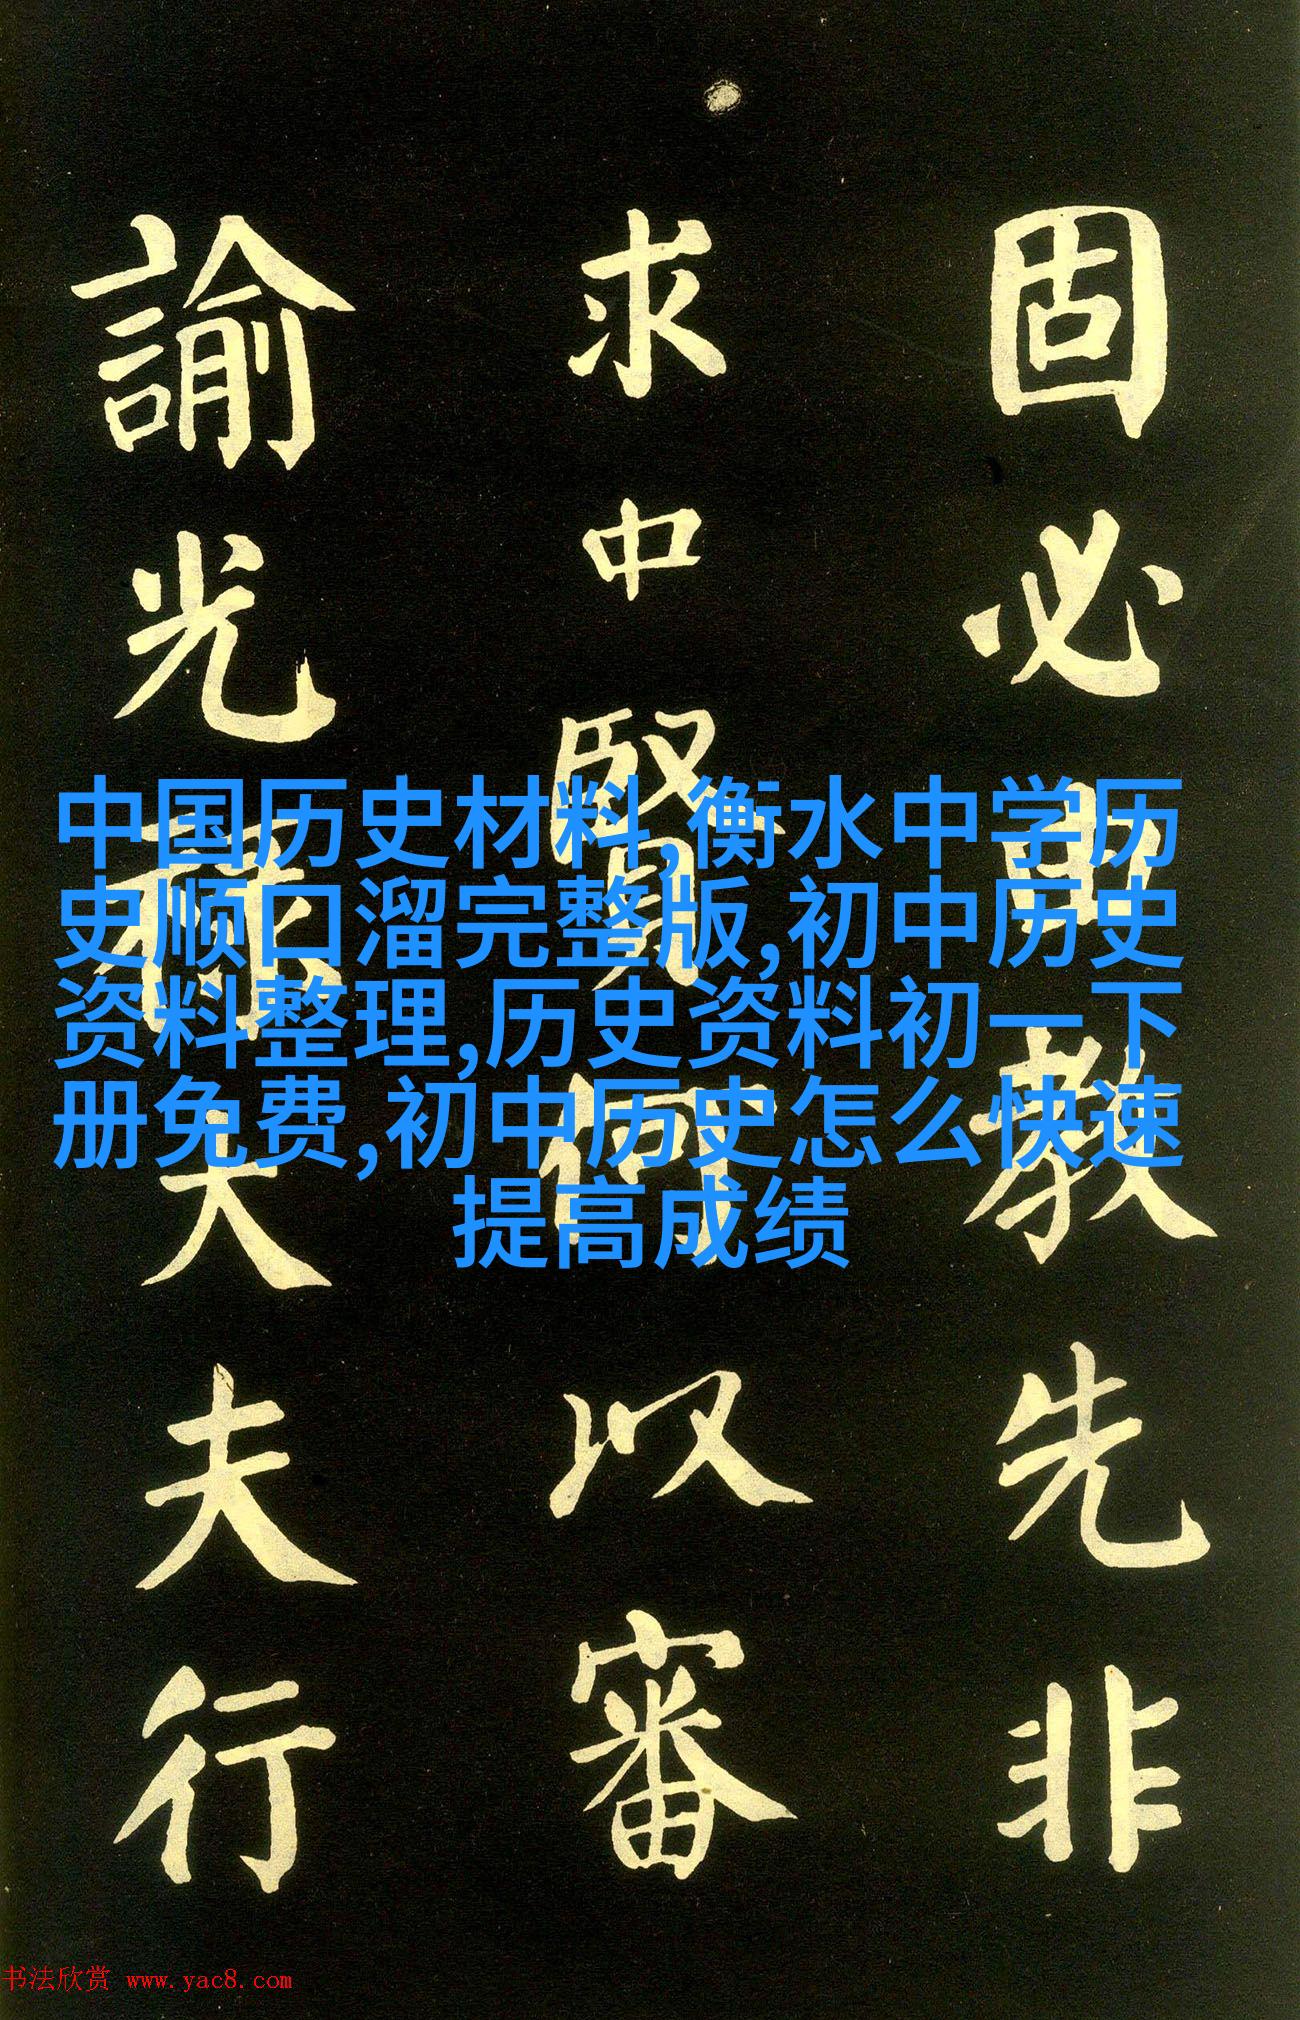 固必教先非
求中賢何以審
諭光祿大夫行
中国历史材料,衡水中学历
史顺口溜完整版,初中历史
资料整理,历史资料初一下
册免费,初中历史怎么快速
提高成绩
书法欣赏 www.yac8.com